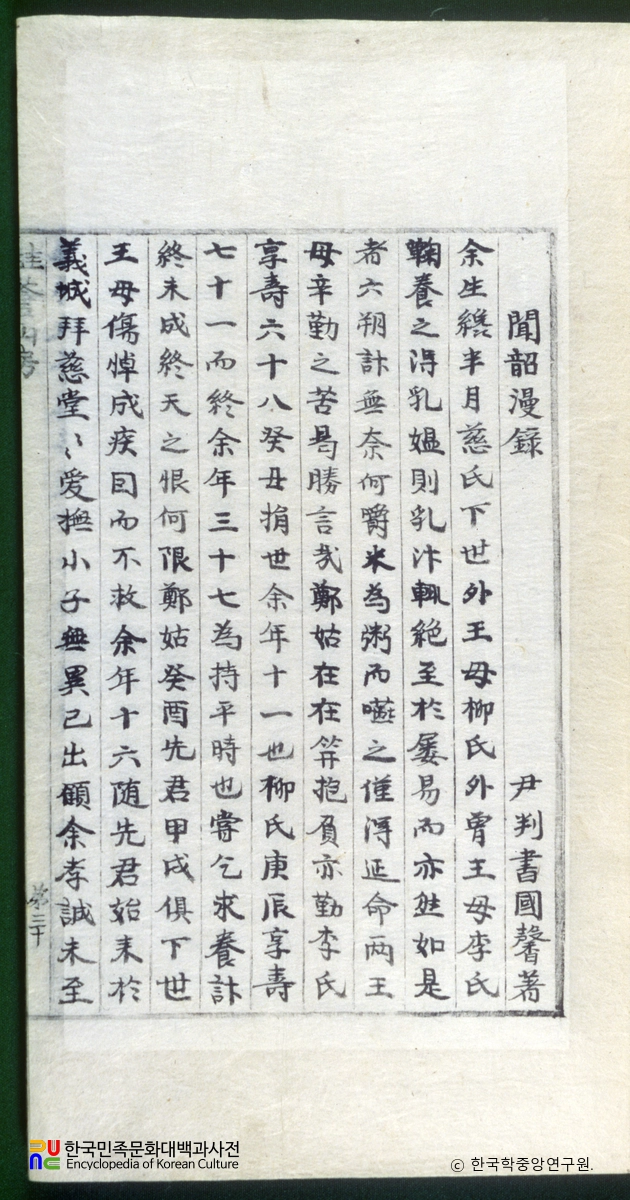 聞韶漫錄 尹判書國馨著
余生纔半月慈氏下世外王母柳氏外曾王母李氏
鞠養之得乳媼則乳汁輒絶至於屢易而亦然如是
者六朔計無奈何嚼米為粥而嚥之僅得延命兩王
母辛勤之苦曷勝言哉鄭姑在在笄抱負亦勤李氏
享壽六十八癸丑捐世余年十一也柳氏庚辰享壽
七十一而終余年三十七為持平時也嘗乞求養計
終未成終天之恨何限鄭姑癸酉先君甲戌俱下世
王母傷悼成疾因而不救余年十六随先君始来於
義城拜慈堂〻愛撫小子無異己出顧余孝誠未至
第三十
한국민족문화대백과사전
Encyclopedia of Korean Culture
© 한국학중앙연구원.